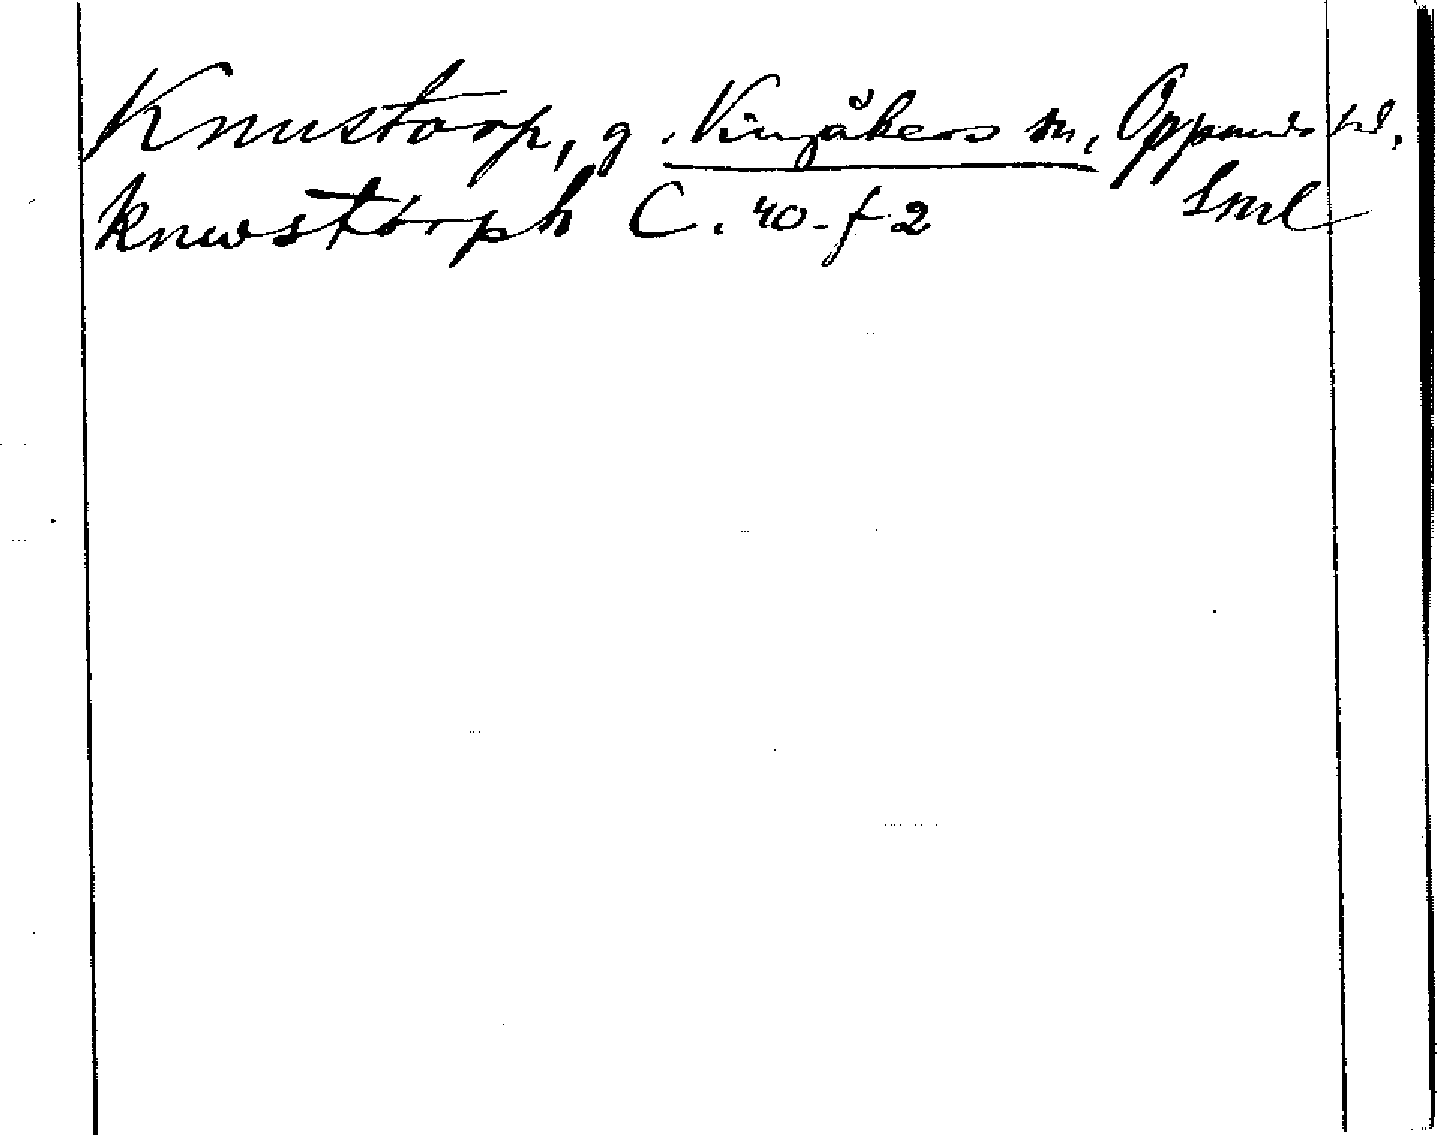 Knustorp, g. Vingåkers sn, Oppunda hd,
knwstorph C. 40 f 2 Sml